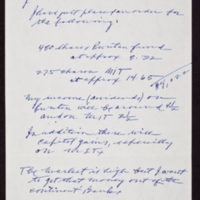 please place an order for
the following:
480 shares Puritan fund
at approx 8.22
275 shares MIT
at approx 14.65
My income (dividends) on
Puritan will be around
and on MIT
In addition there will
capital gains, especially
on MIT.
The market is high but I want
to get that money out of the
Continent Banks